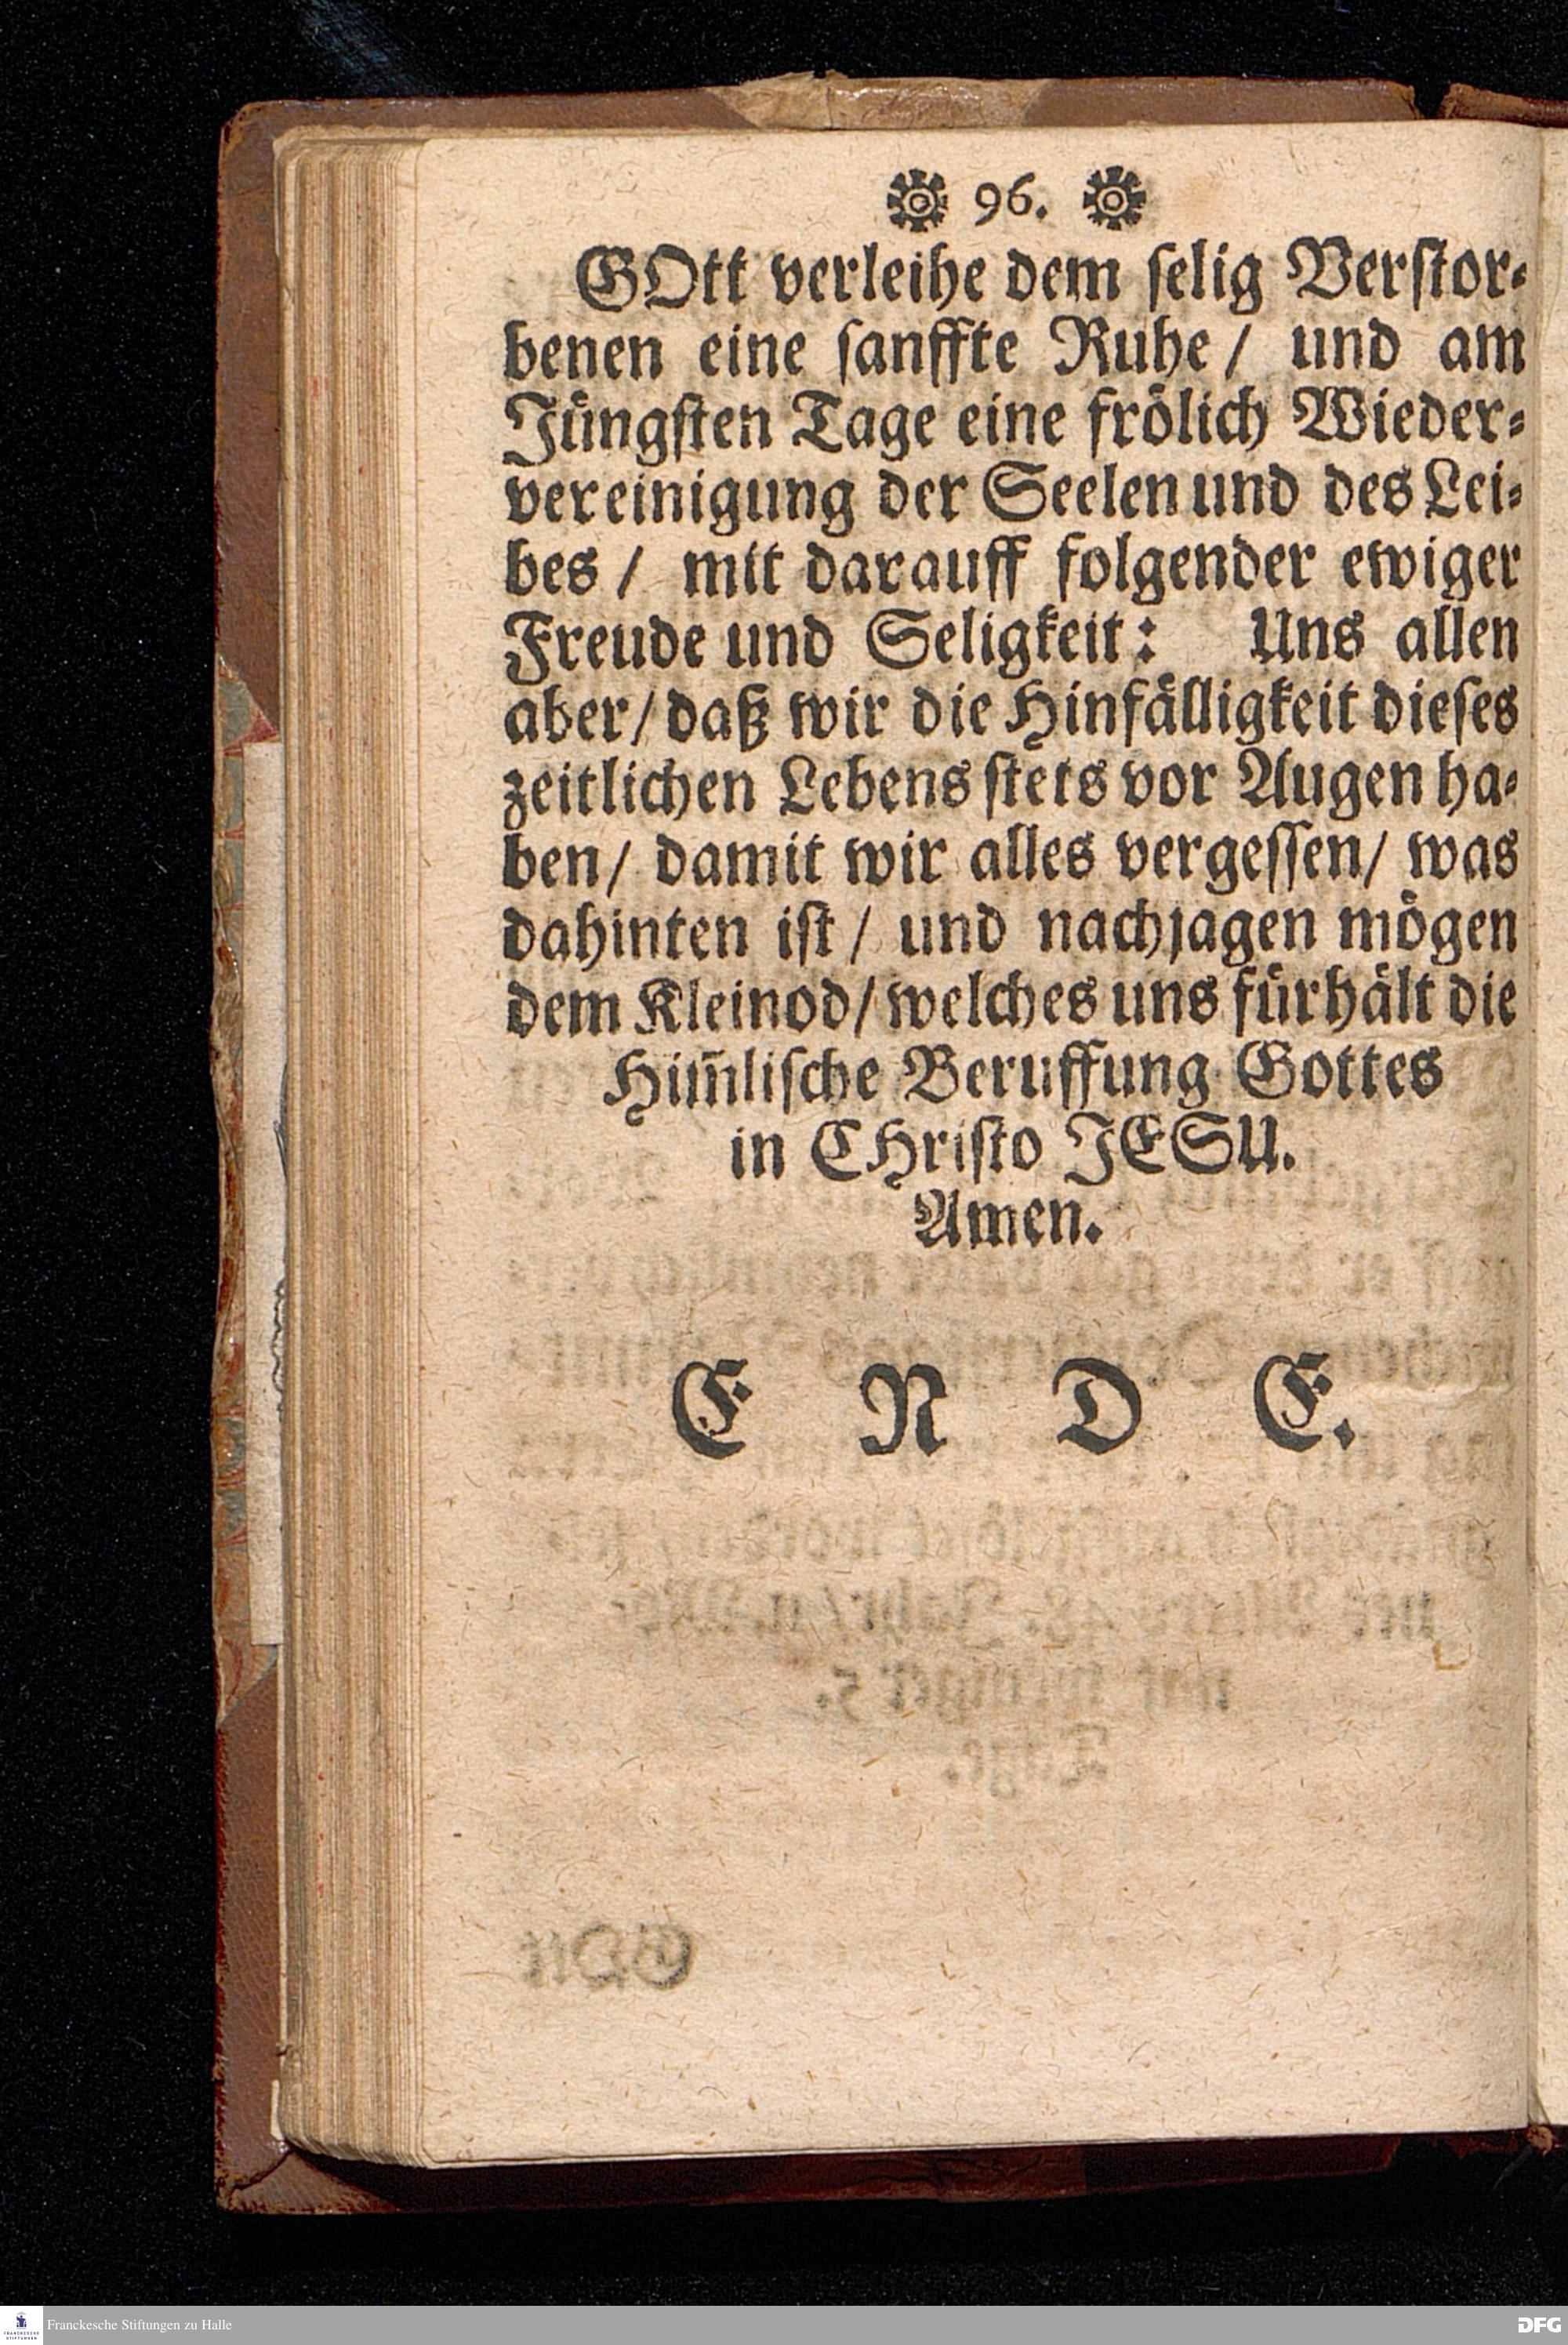 96.
GOtt verleihe dem selig Verstor-
benen eine sanffte Ruhe / und am
Jüngsten Tage eine frölich Wieder-
vereinigung der Seelen und des Lei-
bes / mit darauff folgender ewiger
Freude und Seligkeit: Uns allen
aber / daß wir die Hinfälligkeit dieses
zeitlichen Lebens stets vor Augen ha-
ben / damit wir alles vergessen / was
dahinten ist / und nachjagen mögen
dem Kleinod / welches uns fürhält die
Him̃lische Beruffung Gottes
in CHristo JESU.
Amen.
E N D E.
Franckesche Stiftungen zu Halle
FRANCKESCHE
STIFTUNGEN
DFG